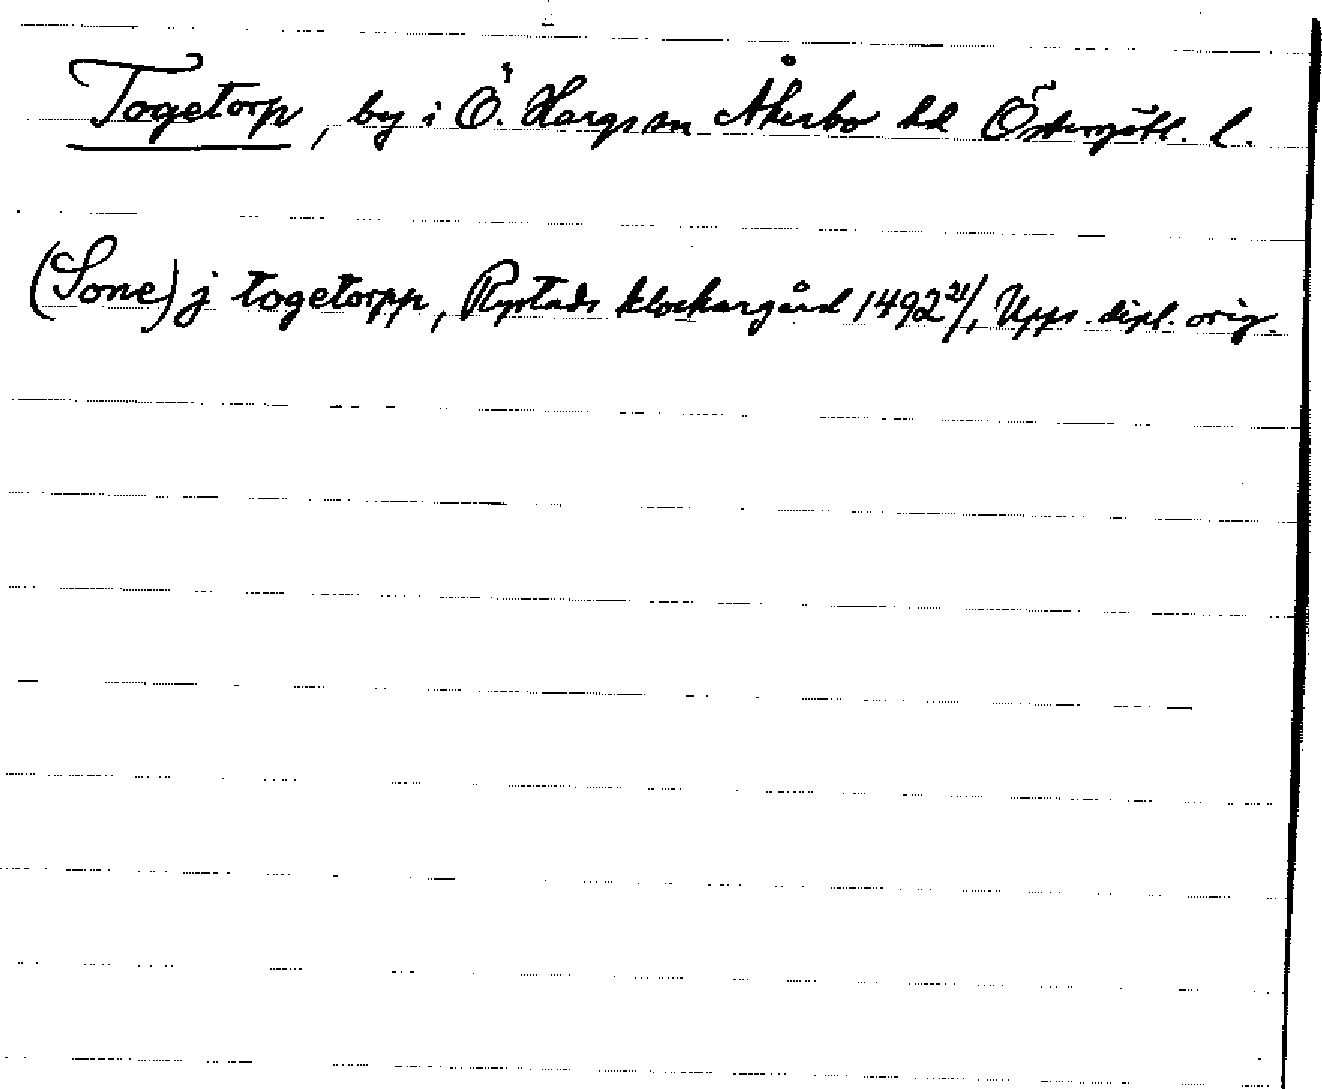 Togetorp, by i Ö. Hargs sn Åkerbo hd Östergötl. l.
(Sone) j togetorpp, Rystads klockargård 1492 21/, Upps. dipl. orig.